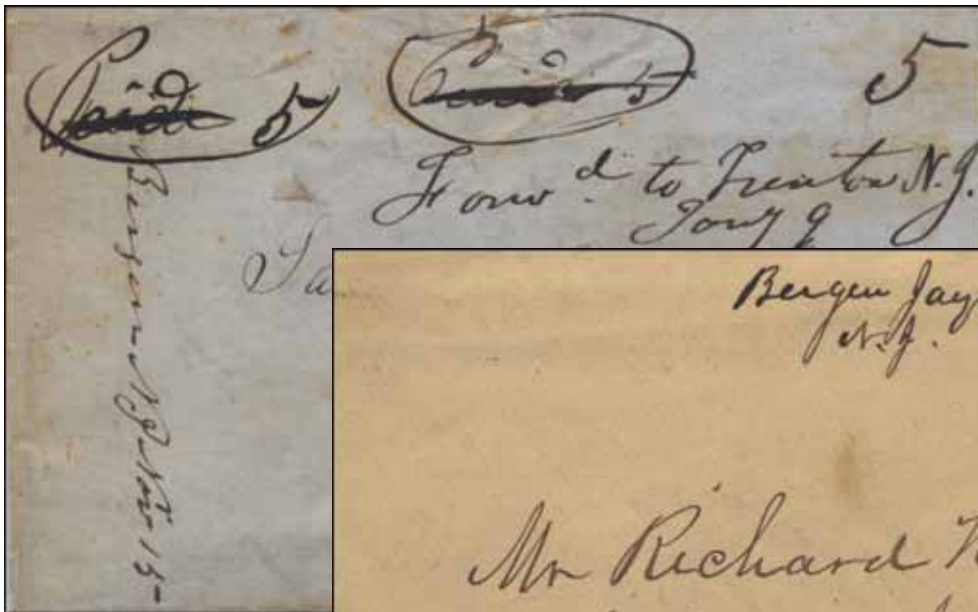 Paid 5
Paid 5
5
Forw.d to Trenton N.J.
Bergen N J Nov 15-
Bergen Jay
N.J.
Mr Richard